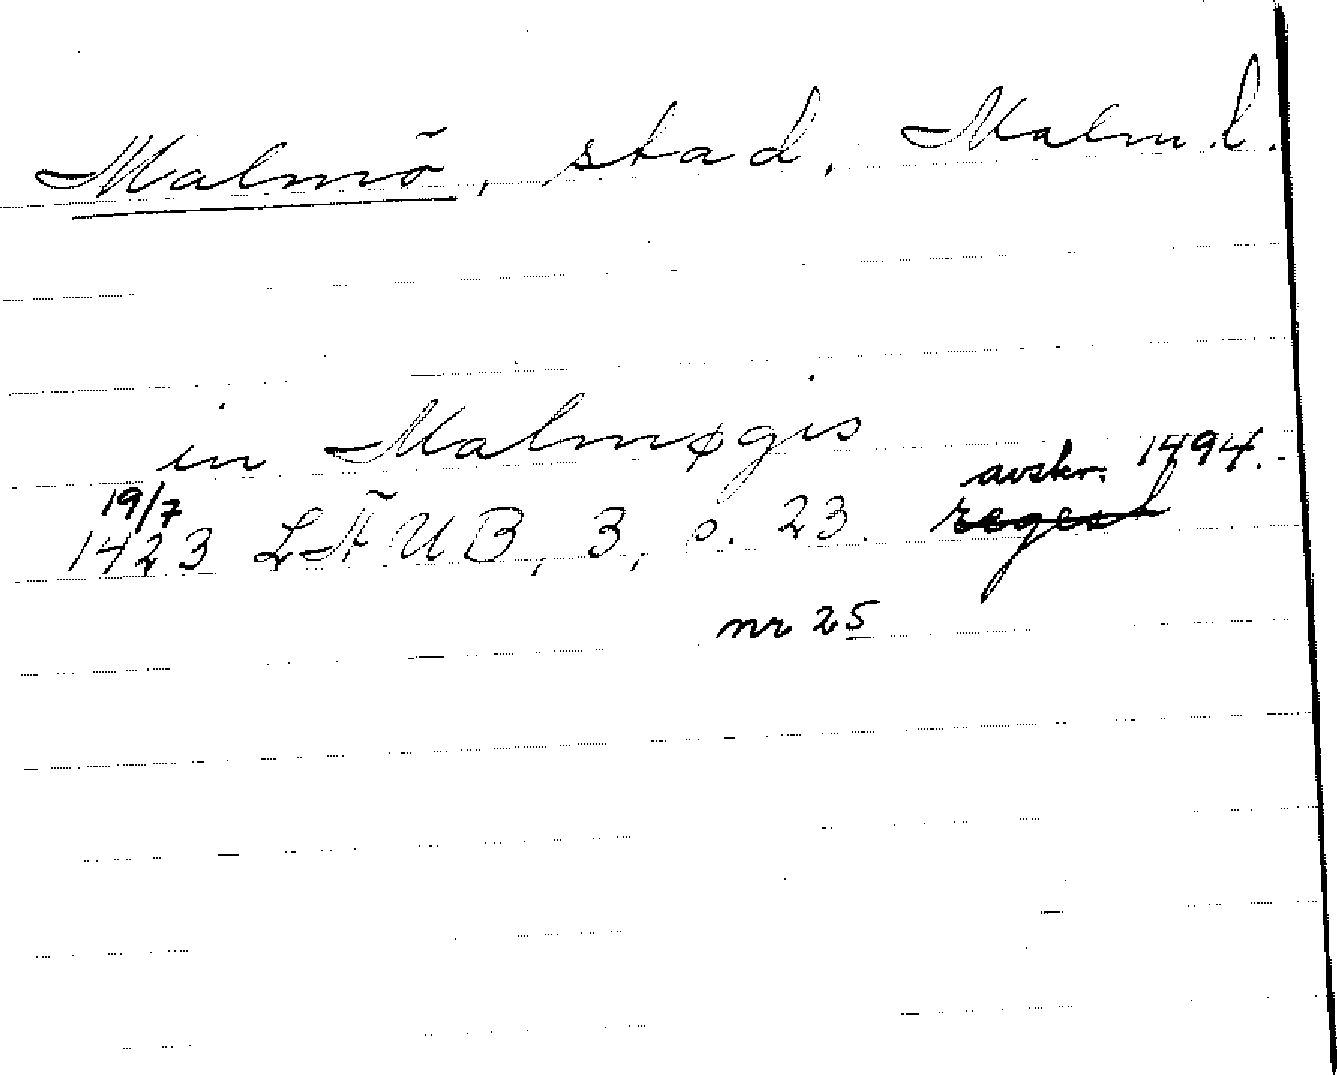 Malmö, stad, Malm. l.
in Malmøgis
19/7
1423 LÄUB, 3, s. 23. regest avskr. 1494.
nr 25